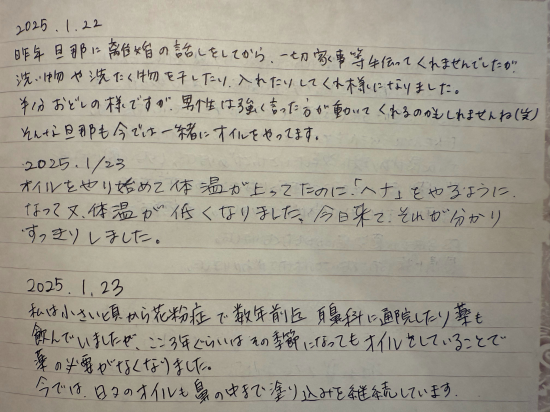 2025.1.22
昨年旦那に離婚の話しをしてから、一切家事等手伝ってくれませんでしたが
洗い物や洗たく物を干したり、入れたりしてくれ様になりました。
半分おどしの様ですが、男性は強く言った方が動いてくれるのかもしれませんね(笑)
そんな旦那も今では一緒にオイルをやってます。
2025.1/23
オイルをやり始めて体温が上ってたのに、「ヘナ」をやるように
なって又、体温が低くなりました、今日来て、それが分かり
すっきりしました。
2025.1.23
私は小さい頃から花粉症で数年前迄耳鼻科に通院したり薬も
飲んでいましたが、ここ3年ぐらいはその季節になってもオイルをしていることで
薬の必要がなくなりました。
今では、日々のオイルも鼻の中まで塗り込みを継続しています.